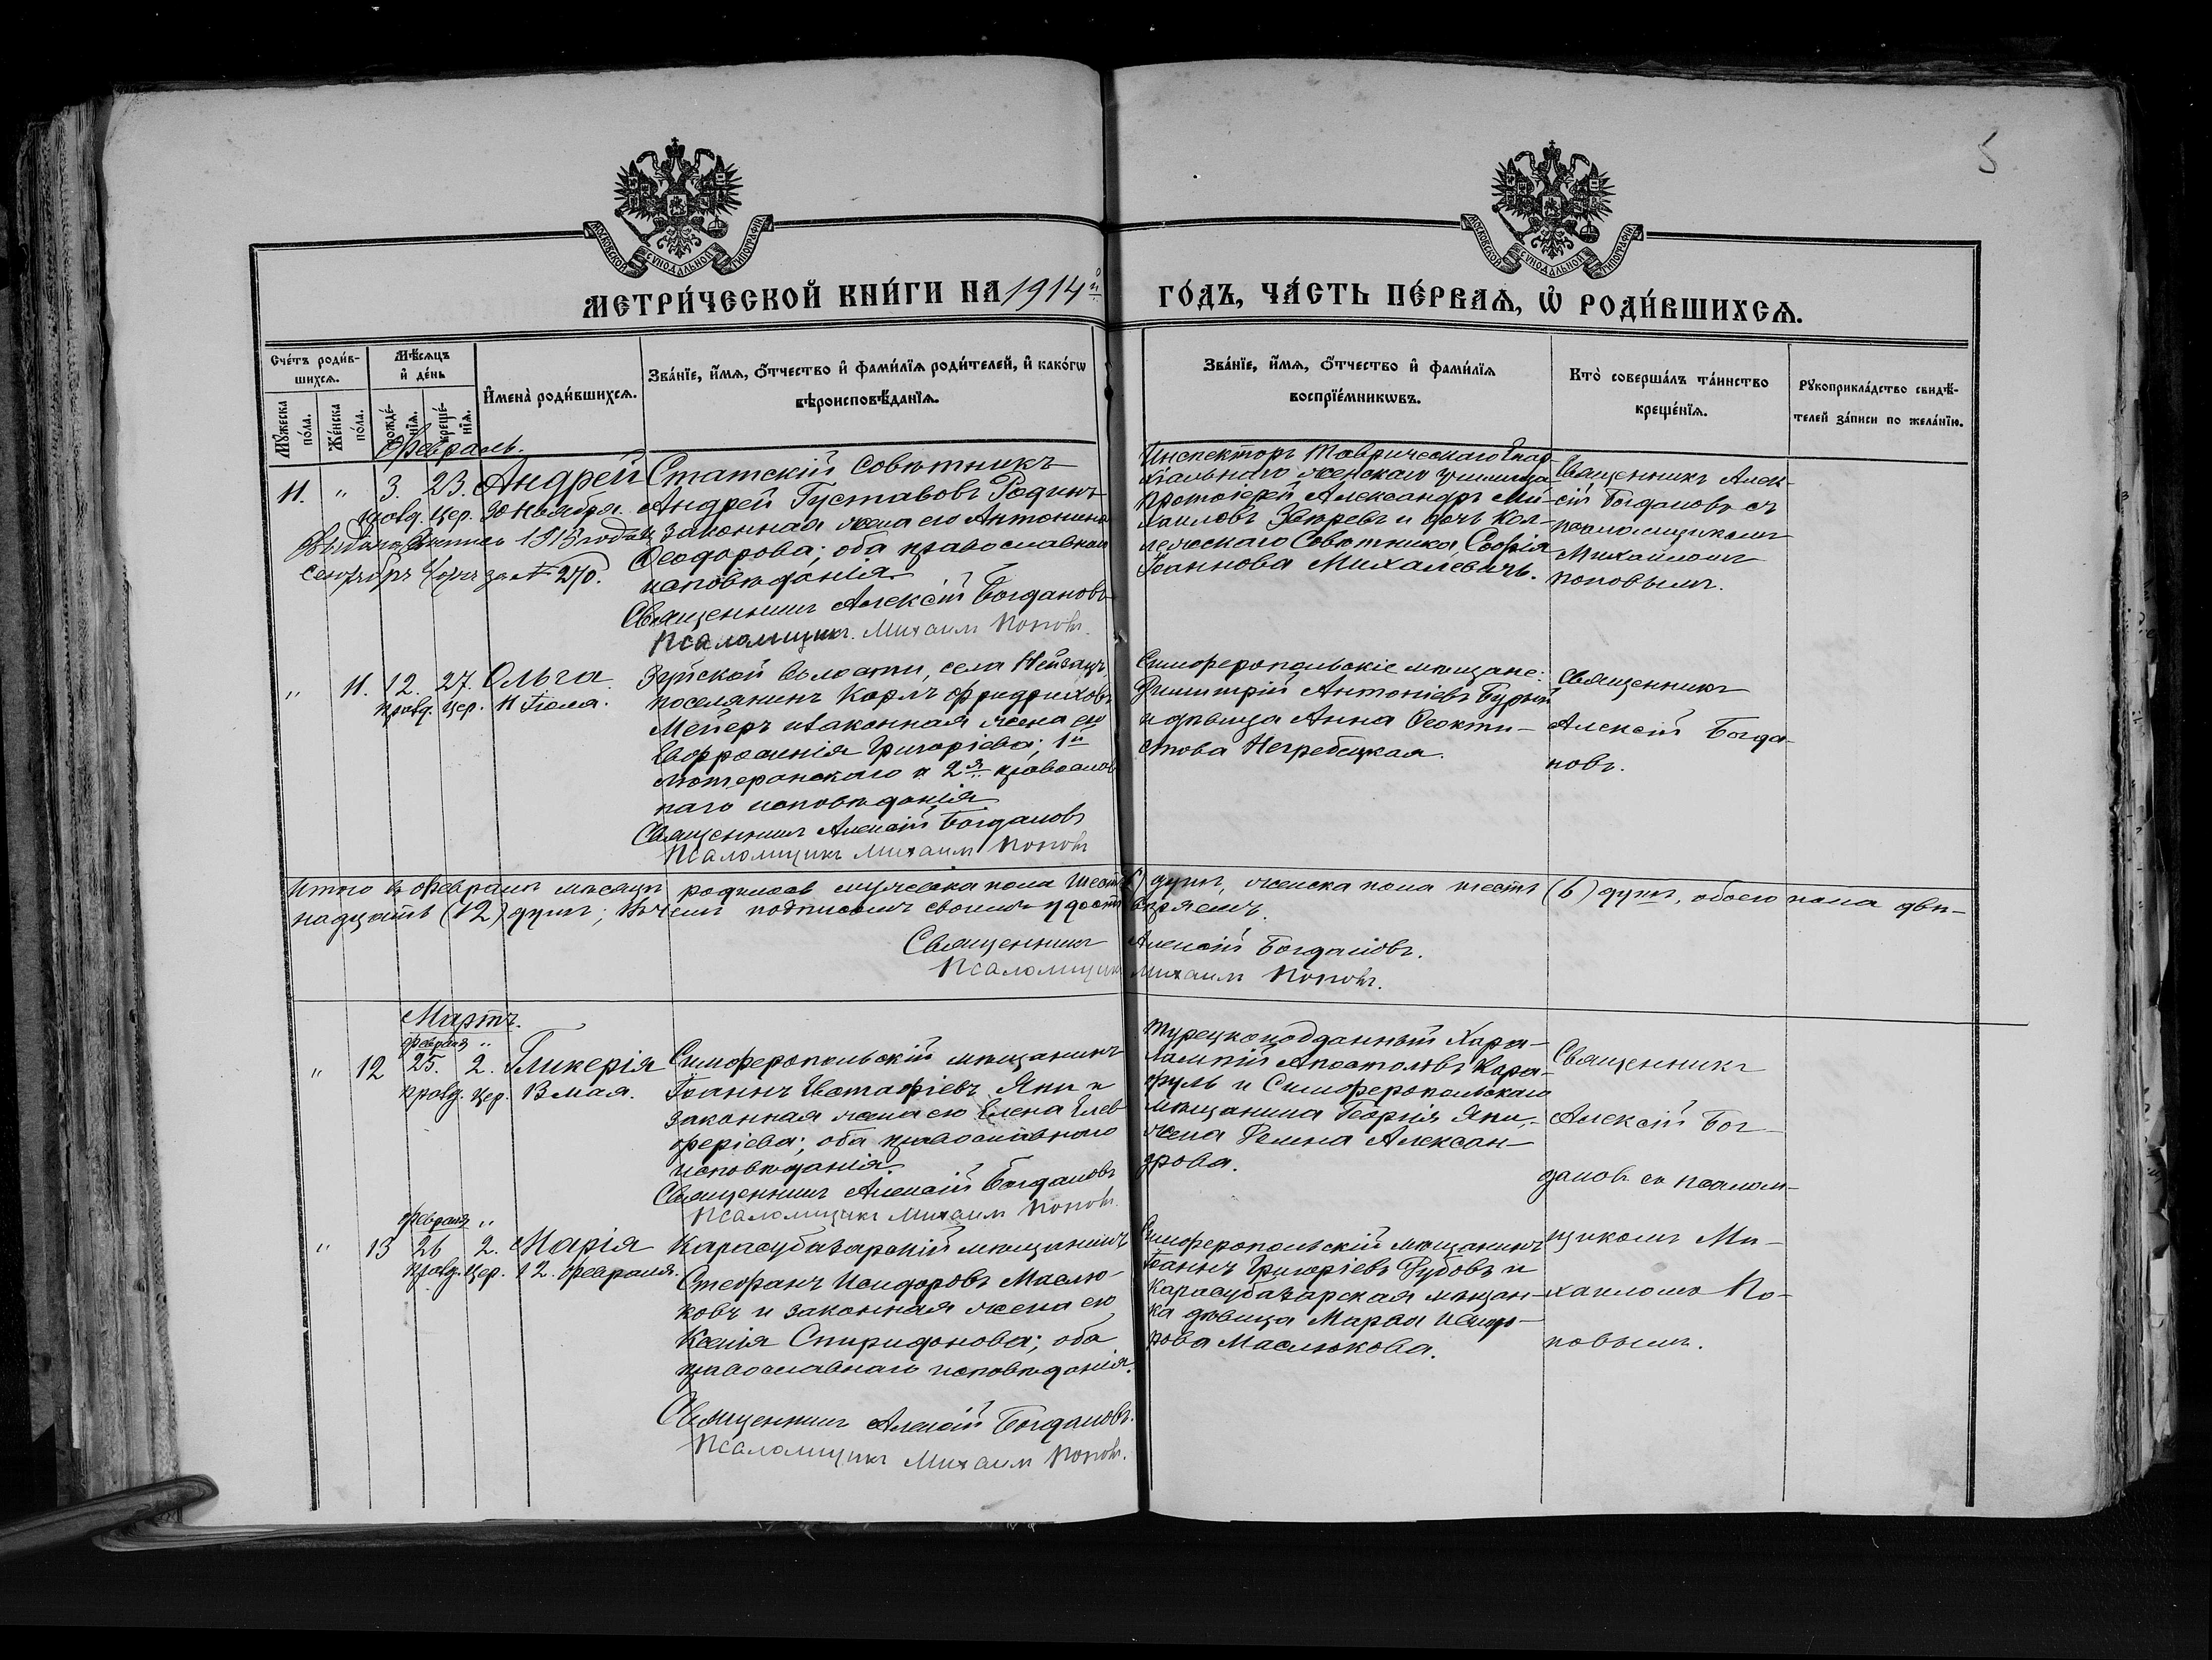 5
МОСКОВСКОЙ СѴНОДАЛЬНОЙ ТИПОГРАФІИ
МОСКОВСКОЙ СѴНОДАЛЬНОЙ ТИПОГРАФІИ
МЕТРИ́ЧЕСКОЙ КНИ́ГИ НА 1914й ГО́ДЪ, ЧА́СТЬ ПЕ́РВАѦ, Ѡ҆ РОДИ́ВШИХСѦ.
Сче́тъ роди́в-
шихсѧ.
Мѹ́жеска по́ла.
Же́нска по́ла.
Мѣ́сѧцъ
и҆ де́нь
рожде́-
нїѧ.
креще́-
нїѧ.
И҆мена̀ роди́вшихсѧ.
Зва́нїе, и҆́мѧ, ѻ҆́тчество и҆ фами́лїѧ роди́телей, и҆ како́гѡ
вѣроисповѣ́данїѧ.
Зва́нїе, и҆́мѧ, ѻ҆́тчество и҆ фами́лїѧ
воспрїе́мникѡвъ.
Кто̀ соверша́лъ та́инство
креще́нїѧ.
Рꙋкоприкла́дство свидѣ́-
телей за́писи по жела́нїю.
Февраль.
11. " 3. 23. Андрей
правд. цер. 30 ноября.
1913 года
сентября за № 270.
Статскій Совѣтникъ
Андрей Густавовъ Родинъ
и законная жена его Антонина
Ѳеодорова; оба православнаго
исповѣданія.
Священникъ Алексій Богдановъ
Псаломщикъ Михаилъ Поповъ.
Инспекторъ Таврическаго Епар-
хіальнаго женскаго училища
Протоіерей Александръ Ми-
хаиловъ Звѣревъ и дочь Кол-
лежскаго Совѣтника Софія
Іоаннова Михалевичъ.
Священникъ Алек-
сій Богдановъ съ
псаломщикомъ
Михаиломъ
Поповымъ.
" 11. 12. 27. Ольга
правд. цер. 11 Іюля.
Зуйской волости, села Нейзацъ
поселянинъ Карлъ Фридриховъ
Мейеръ и законная жена его
Евфросинія Григоріева; 1й
лютеранскаго и 2я православ
наго исповѣданія
Священникъ Алексій Богдановъ
Псаломщикъ Михаилъ Поповъ
Симферопольскіе мѣщане:
Димитрій Антоніевъ
и дѣвица Анна Ѳеокти-
стова Негребецкая.
Священникъ
Алексій Богда-
новъ.
Итого въ Февралѣ мѣсяцѣ родилось мужеска пола шесть (6) душъ, женска пола шесть (6) душъ, обоего пола двѣ-
надцать (12) душъ; въ чемъ подписомъ своимъ удостовѣряемъ.
Священникъ Алексій Богдановъ.
Псаломщикъ Михаилъ Поповъ.
Мартъ.
февраля "
" 12 25. 2. Гликерія
правд. цер. 13 мая.
Симферопольскій мѣщанинъ
Іоаннъ Евстафіевъ Япи и
законная жена его Елена Елев
ѳеріева; оба православнаго
исповѣданія.
Священникъ Алексій Богдановъ
Псаломщикъ Михаилъ Поповъ.
Турецкоподданный Хара-
лампій Апостоловъ Кара-
фуль и Симферопольскаго
мѣщанина Георгія Япи,
жена Елена Алексан-
дрова.
Священникъ
Алексій Бог-
дановъ съ псалом-
щикомъ Ми-
хаиломъ По-
повымъ.
февраля "
" 13 26 2. Марія
правд. цер. 12. февраля.
Карасубазарскій мѣщанинъ
Стефанъ Исидоровъ Маслю-
ковъ и законная жена его
Ксенія Спиридонова; оба
православнаго исповѣданія.
Священникъ Алексій Богдановъ.
Псаломщикъ Михаилъ Поповъ.
Симферопольскій мѣщанинъ
Іоаннъ Григоріевъ и
Карасубазарская мѣщан-
ка дѣвица Марѳа Исидо-
рова Маслюкова.